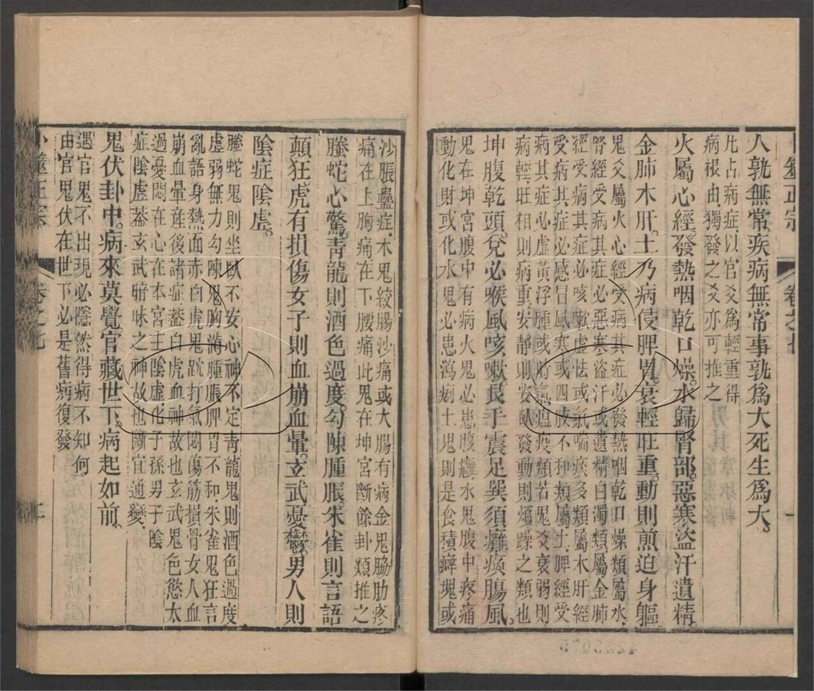 卜筮正宗 卷之七
人孰無常疾病無常事孰為大死生為大
凡占病症以官爻為輕重得
病根由獨發之爻亦可推之
火屬心經發熱咽乾口燥水歸腎部惡寒盜汗遺精
金肺木肝土乃病侵脾胃衰輕旺重動則煎迫身軀
鬼爻屬火心經受病其症必發熱咽乾口燥類屬水
腎經受病其症必惡寒盜汗或遺精白濁類屬金肺
經受病其症必咳嗽虛怯或氣喘痰多類屬木肝經
受病其症必感冒風寒或四肢不和類屬土脾經受
病其症必虛黃浮腫或時氣瘟疫類若鬼爻衰弱則
病輕旺相則病重安靜則安臥發動則煩躁之類也
坤腹乾頭兌必喉風咳嗽艮手震足巽須癱瘓腸風
鬼在坤宮腹中有病火鬼必患腹癰水鬼腹中疼痛
動化財或化水鬼必患瀉痢土鬼則是食積痞塊或
沙脹蠱症木鬼絞腸沙痛或大腸有病金鬼脇肋疼
痛在上胸痛在下腰痛此鬼在坤宮斷餘卦類推之
螣蛇心驚青龍則酒色過度勾陳腫脹朱雀則言語
顛狂虎有損傷女子則血崩血暈玄武憂鬱男人則
陰症陰虛
螣蛇鬼則坐臥不安心神不定青龍鬼則酒色過度
虛弱無力勾陳鬼胸滿腫脹脾胃不和朱雀鬼狂言
亂語身熱面赤白虎鬼跌打氣悶傷筋損骨女人血
崩血暈產後諸症蓋白虎血神故也玄武鬼色慾太
過憂悶在心在本宮主陰虛化子孫男子陰
症陰虛蓋玄武暗昧之神故也斷宜通變
鬼伏卦中病來莫覺官藏世下病起如前
遇官鬼不出現必隱然得病不知何
由官鬼伏在世下必是舊病復發
卜筮正宗 卷之七 二